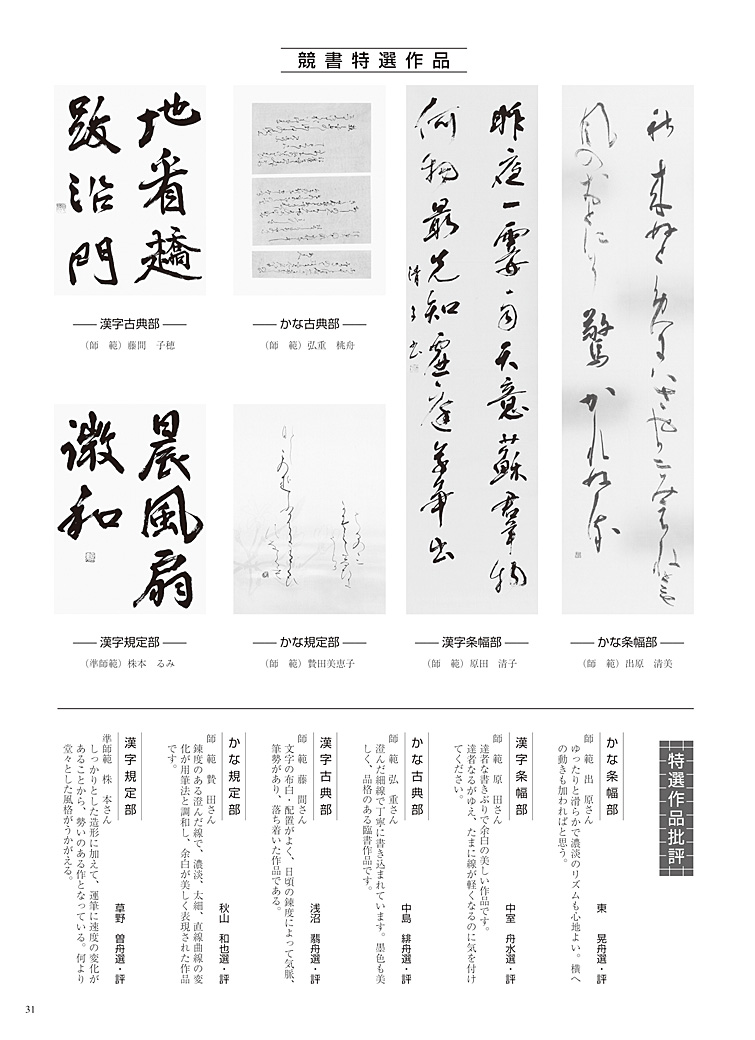 競書特選作品
地看趫
跋沿門
漢字古典部
（師　範）藤間　子穂
かな古典部
（師　範）弘重　桃舟
昨夜一霎雨天意蘇群物
何物最先知虚庭草争出
清子書
漢字条幅部
（師　範）原田　清子
秋来ぬと
風のおとにそ驚かれぬる
かな条幅部
（師　範）出原　清美
晨風扇
微和
漢字規定部
（準師範）株本　るみ
かな規定部
（師　範）贄田美恵子
特選作品批評
かな条幅部
東　晃舟選・評
師　範　出　原さん
ゆったりと滑らかで濃淡のリズムも心地よい。横へ
の動きも加わればと思う。
漢字条幅部
中室　舟水選・評
師　範　原　田さん
達者な書きぶりで余白の美しい作品です。
達者なるがゆえ、たまに線が軽くなるのに気を付け
てください。
かな古典部
中島　緋舟選・評
師　範　弘　重さん
澄んだ細線で丁寧に書き込まれています。墨色も美
しく、品格のある臨書作品です。
漢字古典部
浅沼　翡舟選・評
師　範　藤　間さん
文字の布白・配置がよく、日頃の錬度によって気脈、
筆勢があり、落ち着いた作品である。
かな規定部
秋山　和也選・評
師　範　贄　田さん
錬度のある澄んだ線で、濃淡、太細、直線曲線の変
化が用筆法と調和し、余白が美しく表現された作品
です。
漢字規定部
草野　曽舟選・評
準師範　株　本さん
しっかりとした造形に加えて、運筆に速度の変化が
あることから、勢いのある作となっている。何より
堂々とした風格がうかがえる。
31